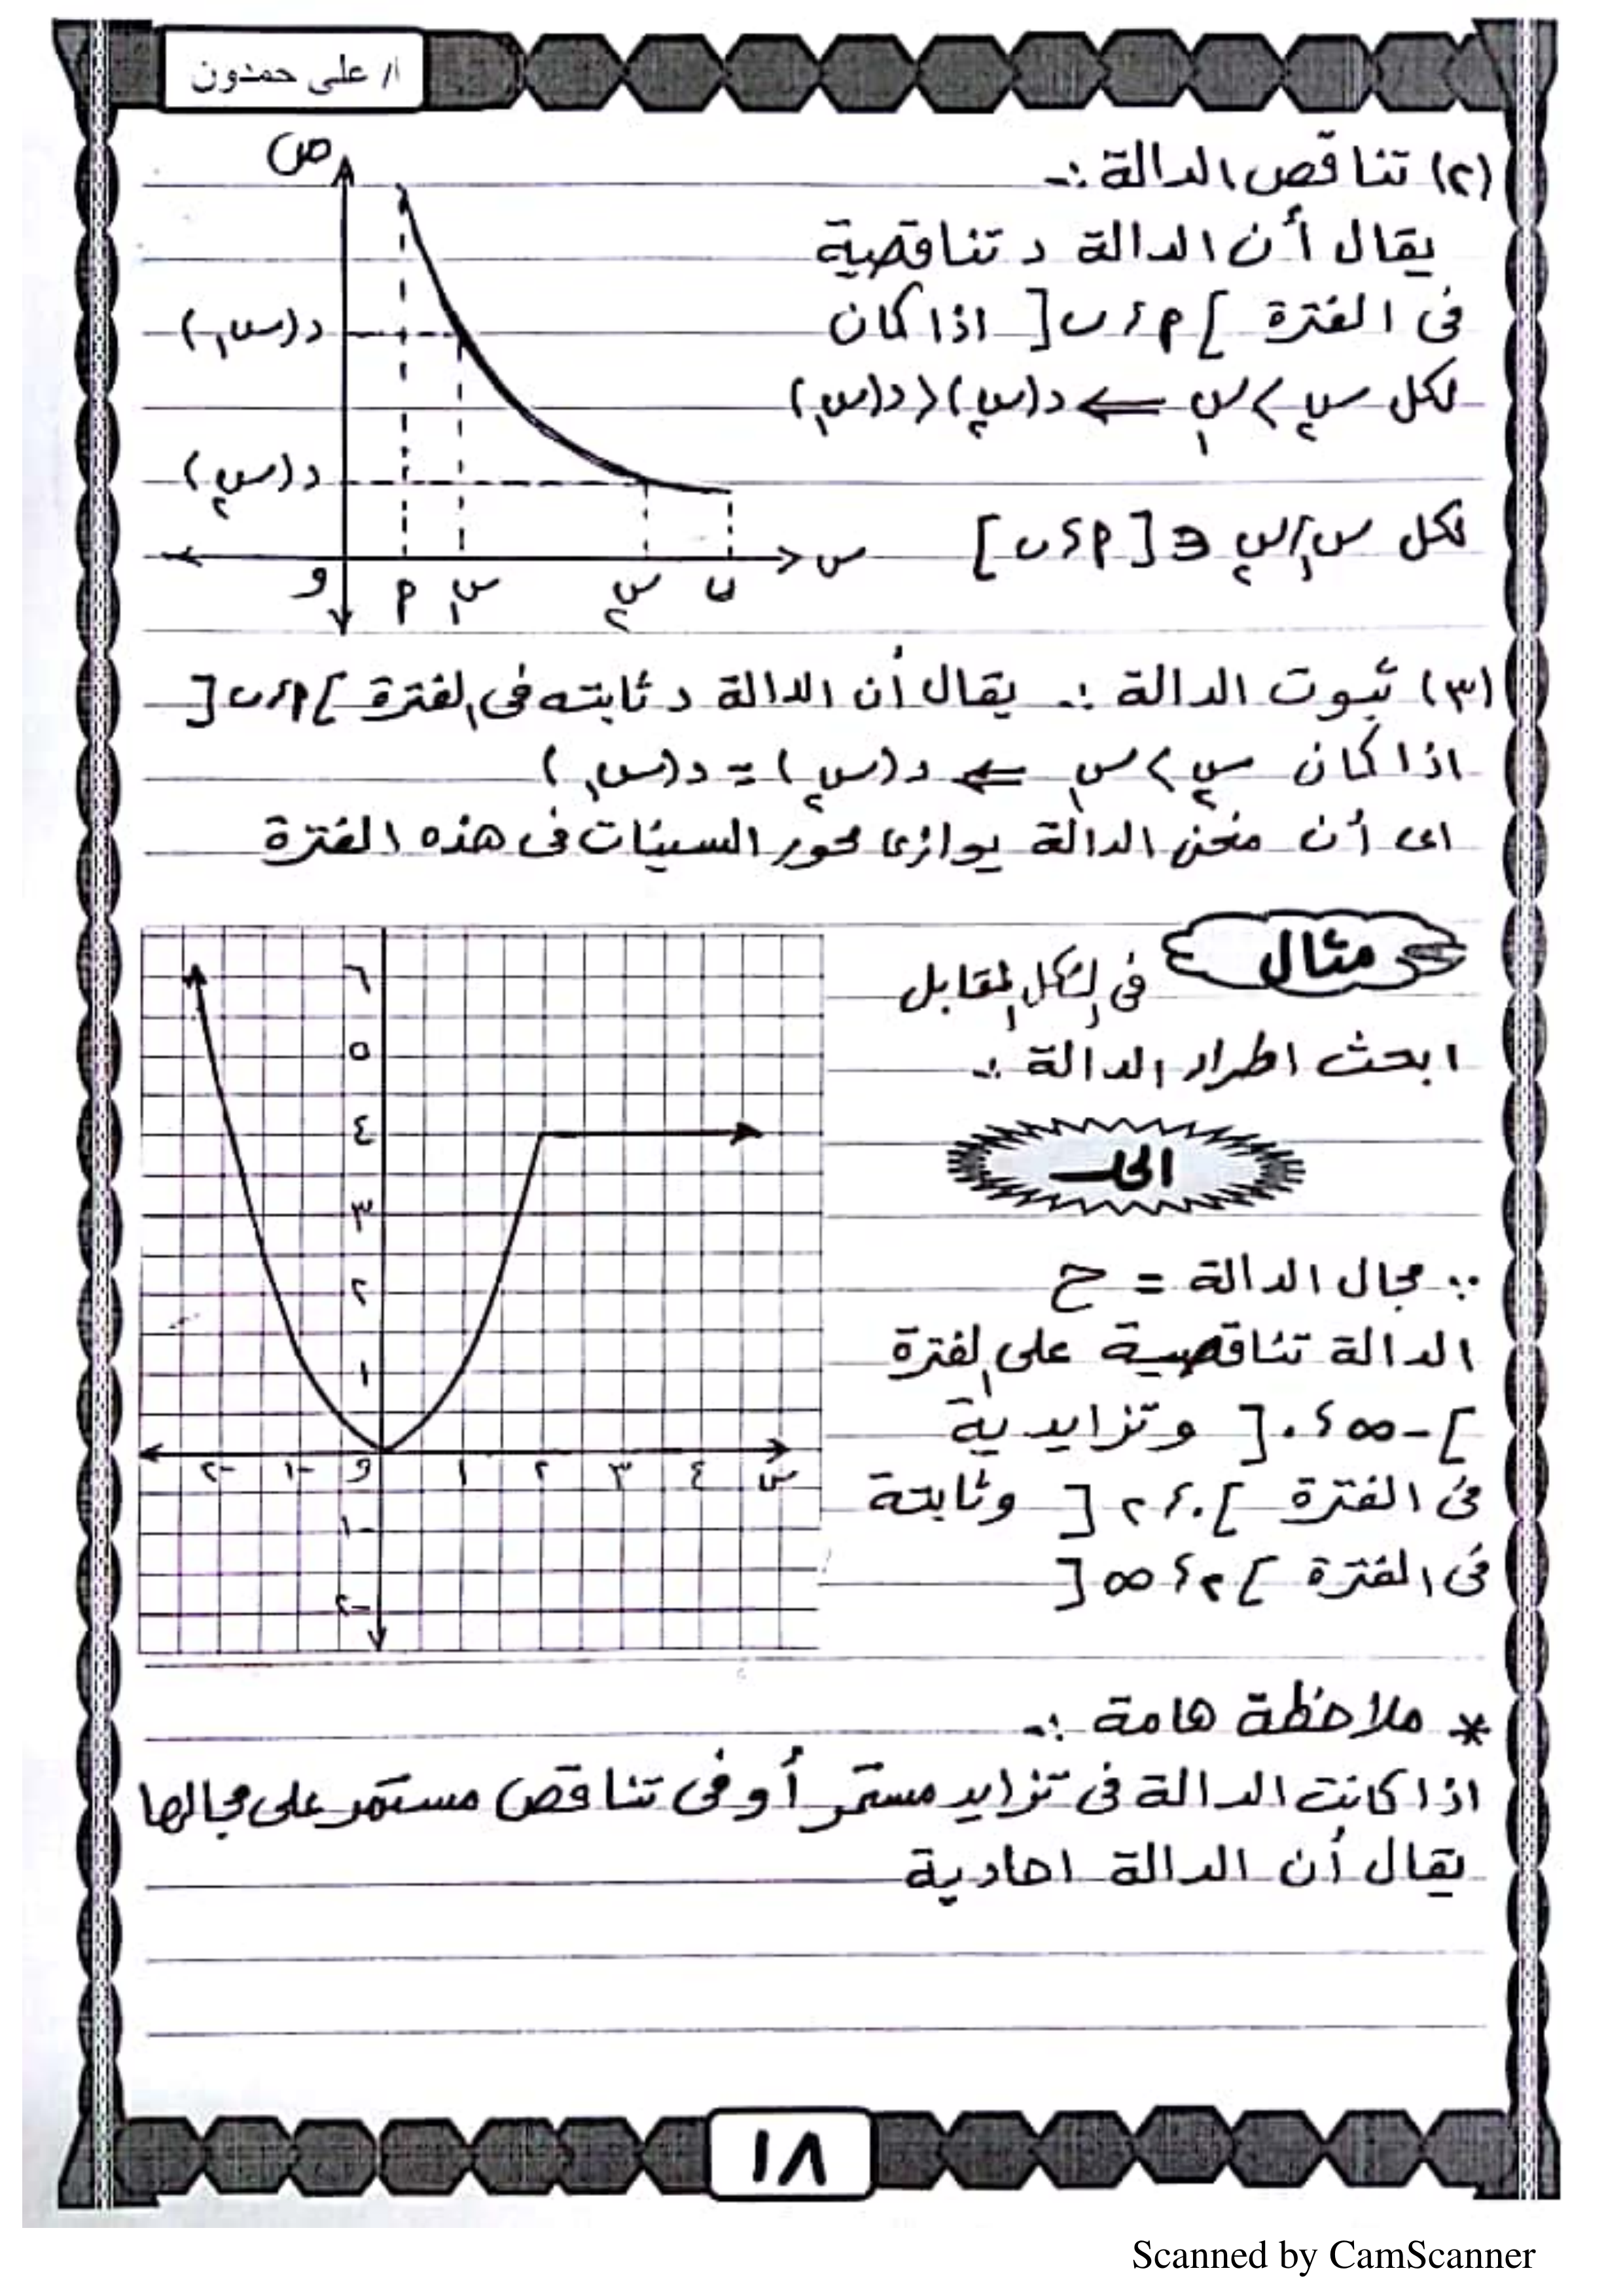 ا/ على حمدون
(٢) تناقص الدالة :-
يقال أن الدالة د تناقصية
فى الفترة ]م ، ب[ اذا كان
لكل س٢ > س١ ⇐ د(س٢) < د(س١)
لكل س١، س٢ ∈ [م ، ب]
ص
د(س١)
د(س٢)
و م س١ س٢ ب س
(٣) ثبوت الدالة :- يقال أن الدالة د ثابته فى الفترة ]م ، ب[
اذا كان س٢ > س١ ⇐ د(س٢) = د(س١)
اى أن منحنى الدالة يوازى محور السينات فى هذه الفترة
مثال
فى الشكل المقابل
ابحث اطراد الدالة :-
الحل
∵ مجال الدالة = ح
الدالة تناقصية على الفترة
]-∞ ، ٠[ وتزايدية
فى الفترة ]٠ ، ٢[ وثابتة
فى الفترة ]٢ ، ∞[
٦
٥
٤
٣
٢
١
-٢ -١ و ١ ٢ ٣ ٤ س
-١
-٢
* ملاحظة هامة :-
اذا كانت الدالة فى تزايد مستمر أو فى تناقص مستمر على مجالها
يقال أن الدالة احادية
١٨
Scanned by CamScanner